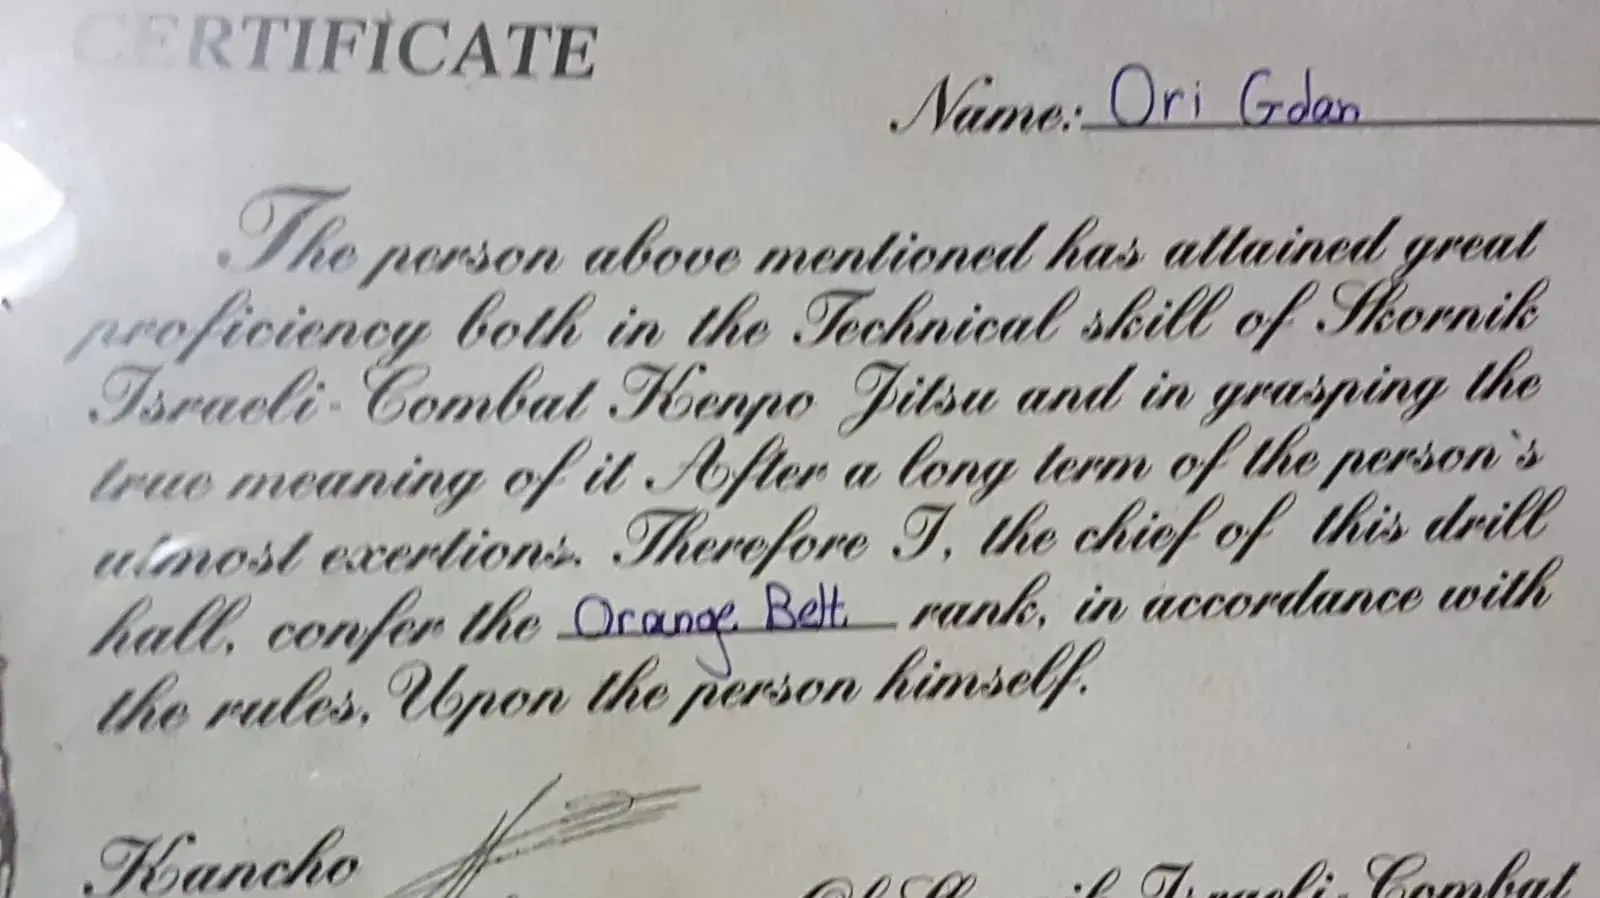 CERTIFICATE
Name: Ori Gdan
The person above mentioned has attained great
proficiency both in the Technical skill of Skornik
Israeli-Combat Kenpo Jitsu and in grasping the
true meaning of it After a long term of the person's
utmost exertions. Therefore I, the chief of this drill
hall, confer the Orange Belt rank, in accordance with
the rules, Upon the person himself.
Kancho
Israeli-Combat